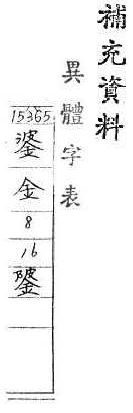 補充資料
異體字表
15365
金
8
16